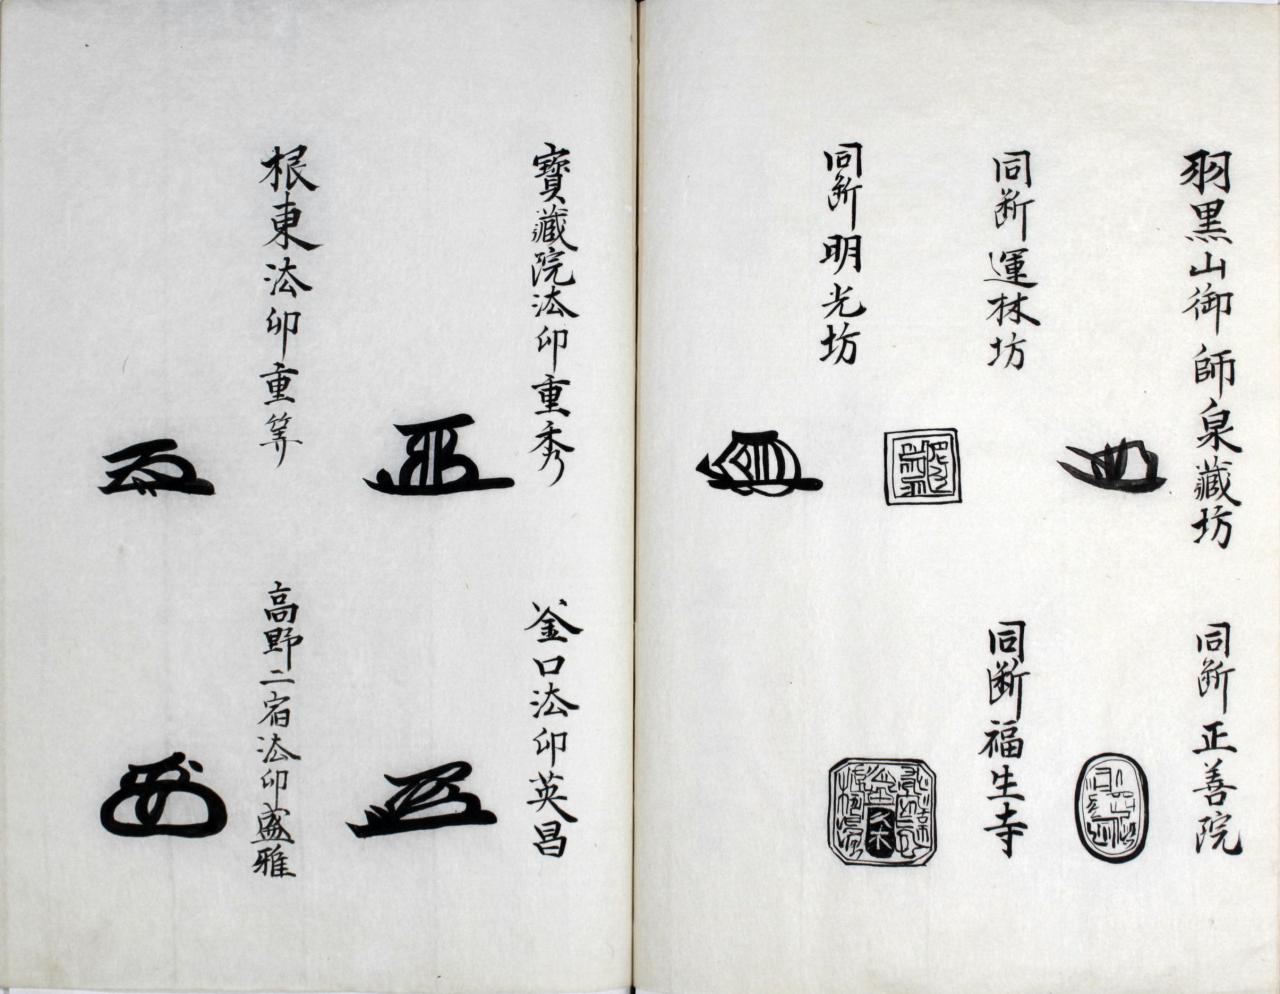 羽黒山御師泉藏坊
同断正善院
同断運林坊
同断福生寺
同断明光坊
寶藏院法印重秀
釜口法印英昌
根東法印重等
高野二宿法印盛雅